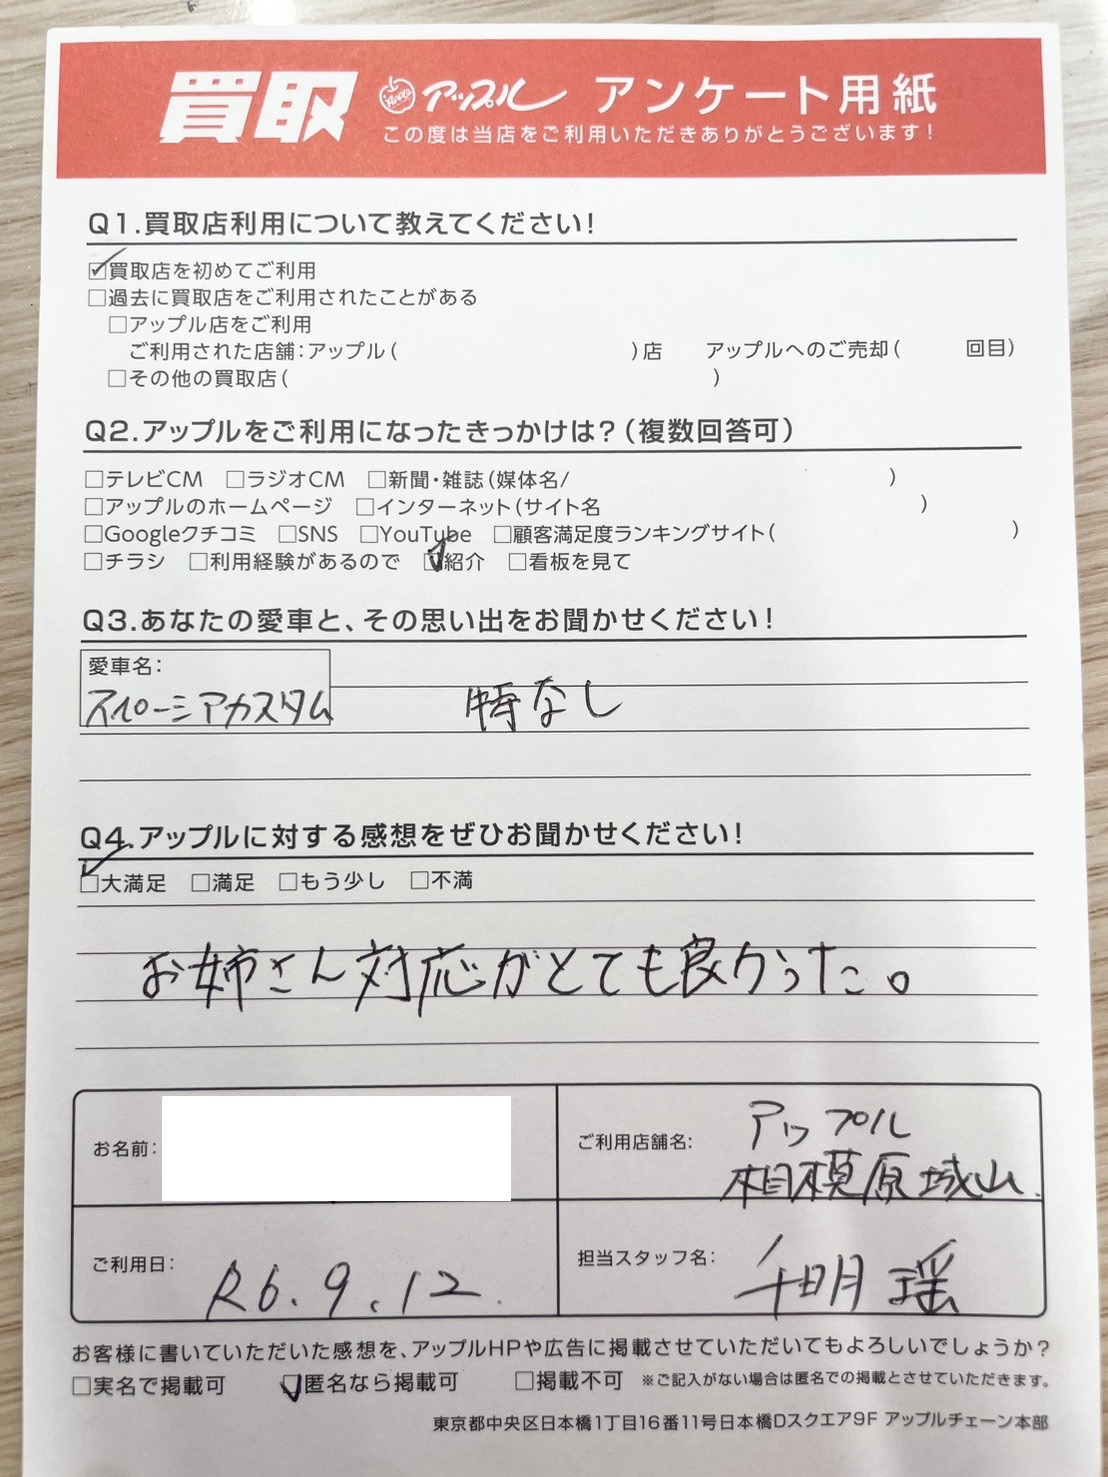 買取 アップル アンケート用紙
この度は当店をご利用いただきありがとうございます！
Q1.買取店利用について教えてください！
☑買取店を初めてご利用
□過去に買取店をご利用されたことがある
□アップル店をご利用
ご利用された店舗：アップル（ ）店 アップルへのご売却（ 回目）
□その他の買取店（ ）
Q2.アップルをご利用になったきっかけは？（複数回答可）
□テレビCM □ラジオCM □新聞・雑誌（媒体名/ ）
□アップルのホームページ □インターネット（サイト名 ）
□Googleクチコミ □SNS □YouTube □顧客満足度ランキングサイト（ ）
□チラシ □利用経験があるので ☑紹介 □看板を見て
Q3.あなたの愛車と、その思い出をお聞かせください！
愛車名：
スペーシアカスタム 特なし
Q4.アップルに対する感想をぜひお聞かせください！
☑大満足 □満足 □もう少し □不満
お姉さん対応がとても良かった。
お名前： ご利用店舗名： アップル
相模原城山
ご利用日： R6.9.12 担当スタッフ名： 千明 瑶
お客様に書いていただいた感想を、アップルHPや広告に掲載させていただいてもよろしいでしょうか？
□実名で掲載可 ☑匿名なら掲載可 □掲載不可 ※ご記入がない場合は匿名での掲載とさせていただきます。
東京都中央区日本橋1丁目16番11号日本橋Dスクエア9F アップルチェーン本部